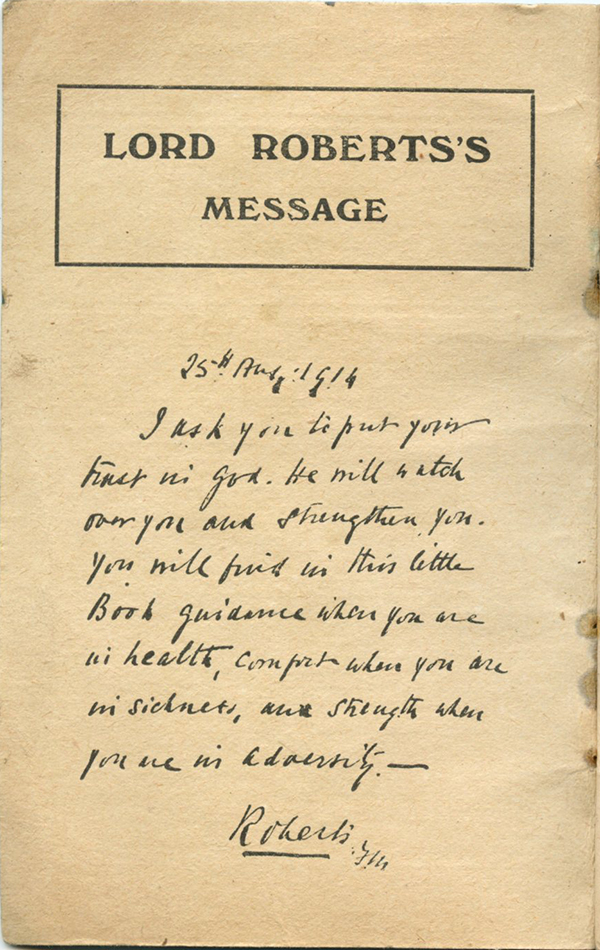 LORD ROBERTS'S
MESSAGE
25th Aug: 1914
I ask you to put your
trust in God. He will watch
over you and strengthen you.
You will find in this little
Book guidance when you are
in health, comfort when you are
in sickness, and strength when
you are in adversity. —
Roberts, FM